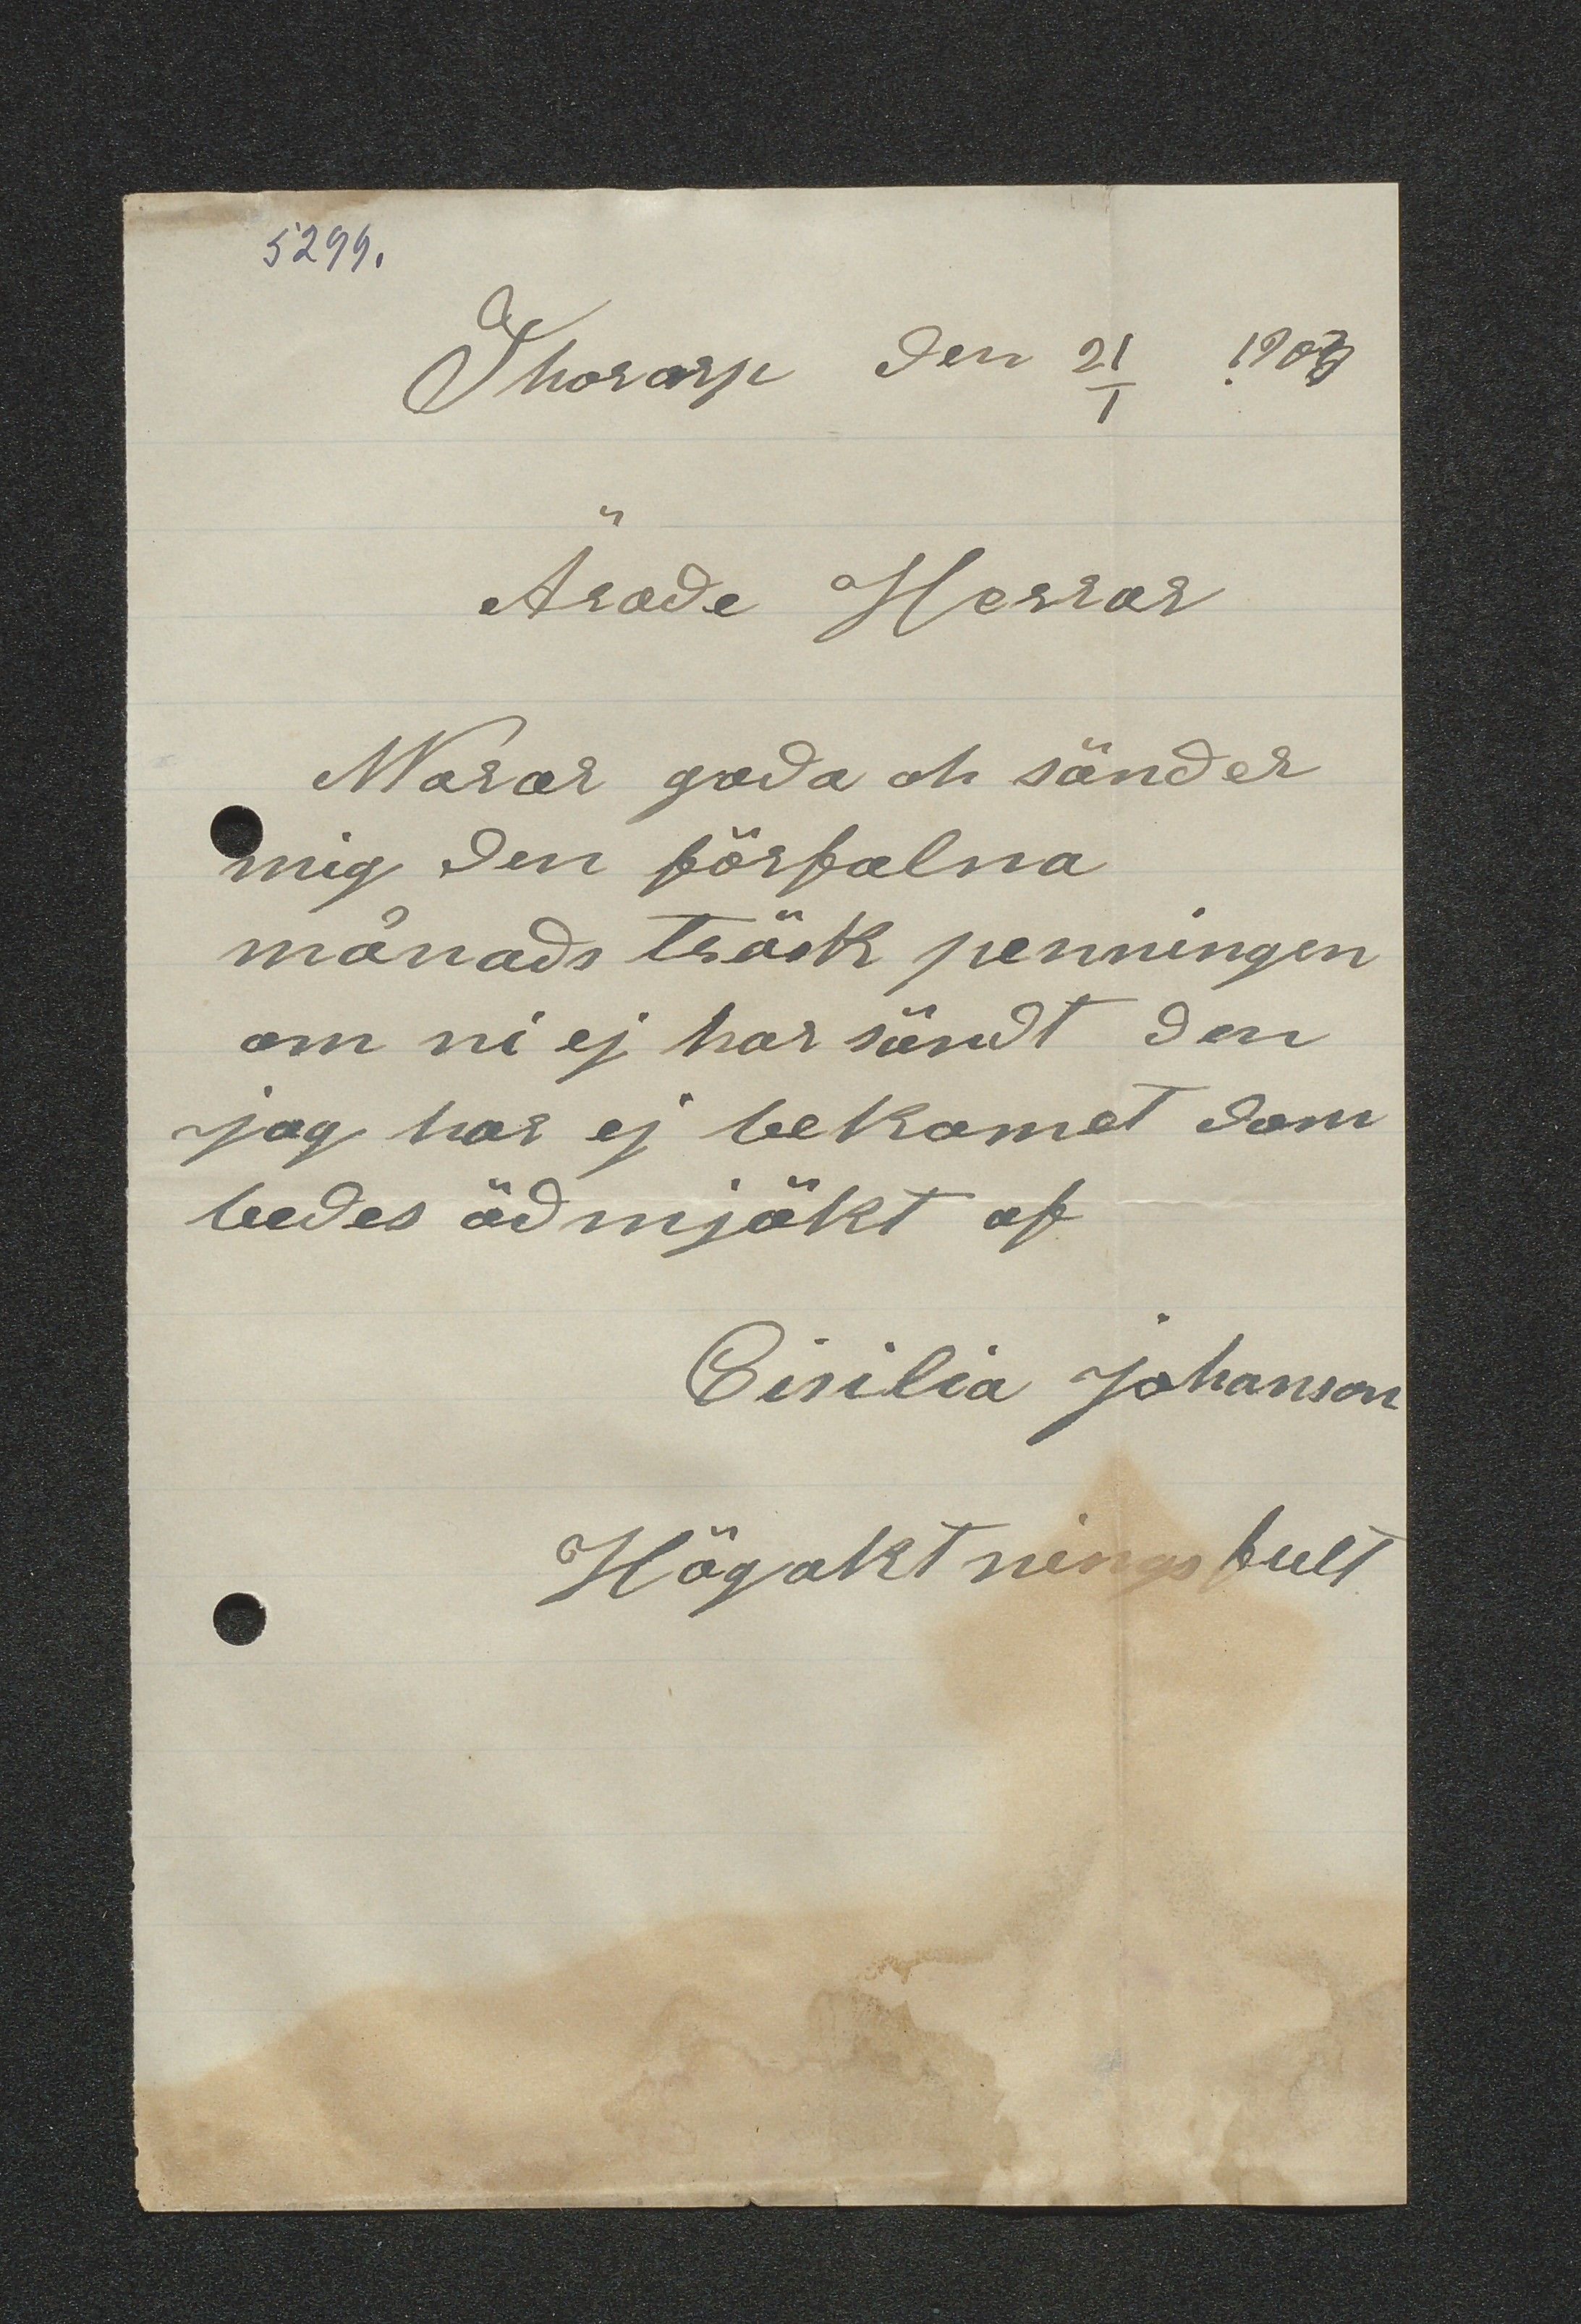 5299.
Thorarp den 21/1
Ärade Herrar
Warar goda oh sänder
mig den förfalna
månads tröskpenningen
om ni ej har sändt den
jag har ej bekomet dom
bedes ödmjökt af
Cisilia Johanson
Högaktningsfult